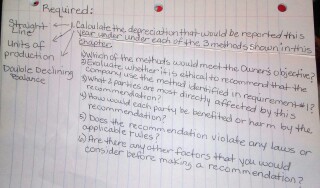 Required:
Calculate the depreciation that would be reported this
year under under each of the 3 methods shown in this
chapter.
Straight
Line
Units of
production
Double Declining
Balance
1) Which of the methods would meet the Owners objective?
2) Evaluate whether it is ethical to recommend that the
company use the method identified in requirement #1?
3) What 2 parties are most directly affected by this
recommendation?
4) How would each party be benefited or harm by the
recommendation?
5) Does the recommendation violate any laws or
applicable rules?
6) Are there any other factors that you would
consider before making a recommendation?